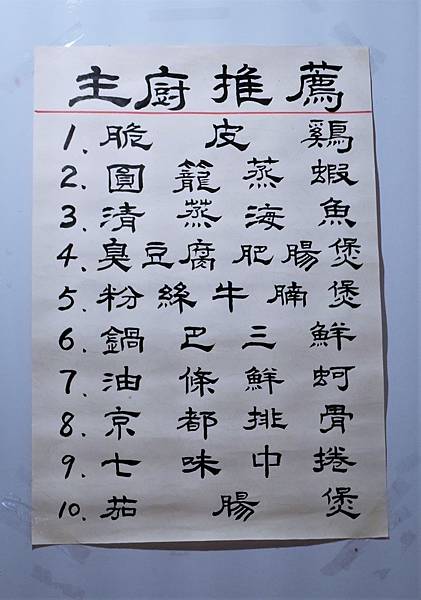 主廚推薦
1. 脆皮鷄
2. 圓籠蒸蝦
3. 清蒸海魚
4. 臭豆腐肥腸煲
5. 粉絲牛腩煲
6. 鍋巴三鮮
7. 油條鮮蚵
8. 京都排骨
9. 七味中捲
10. 茄腸煲